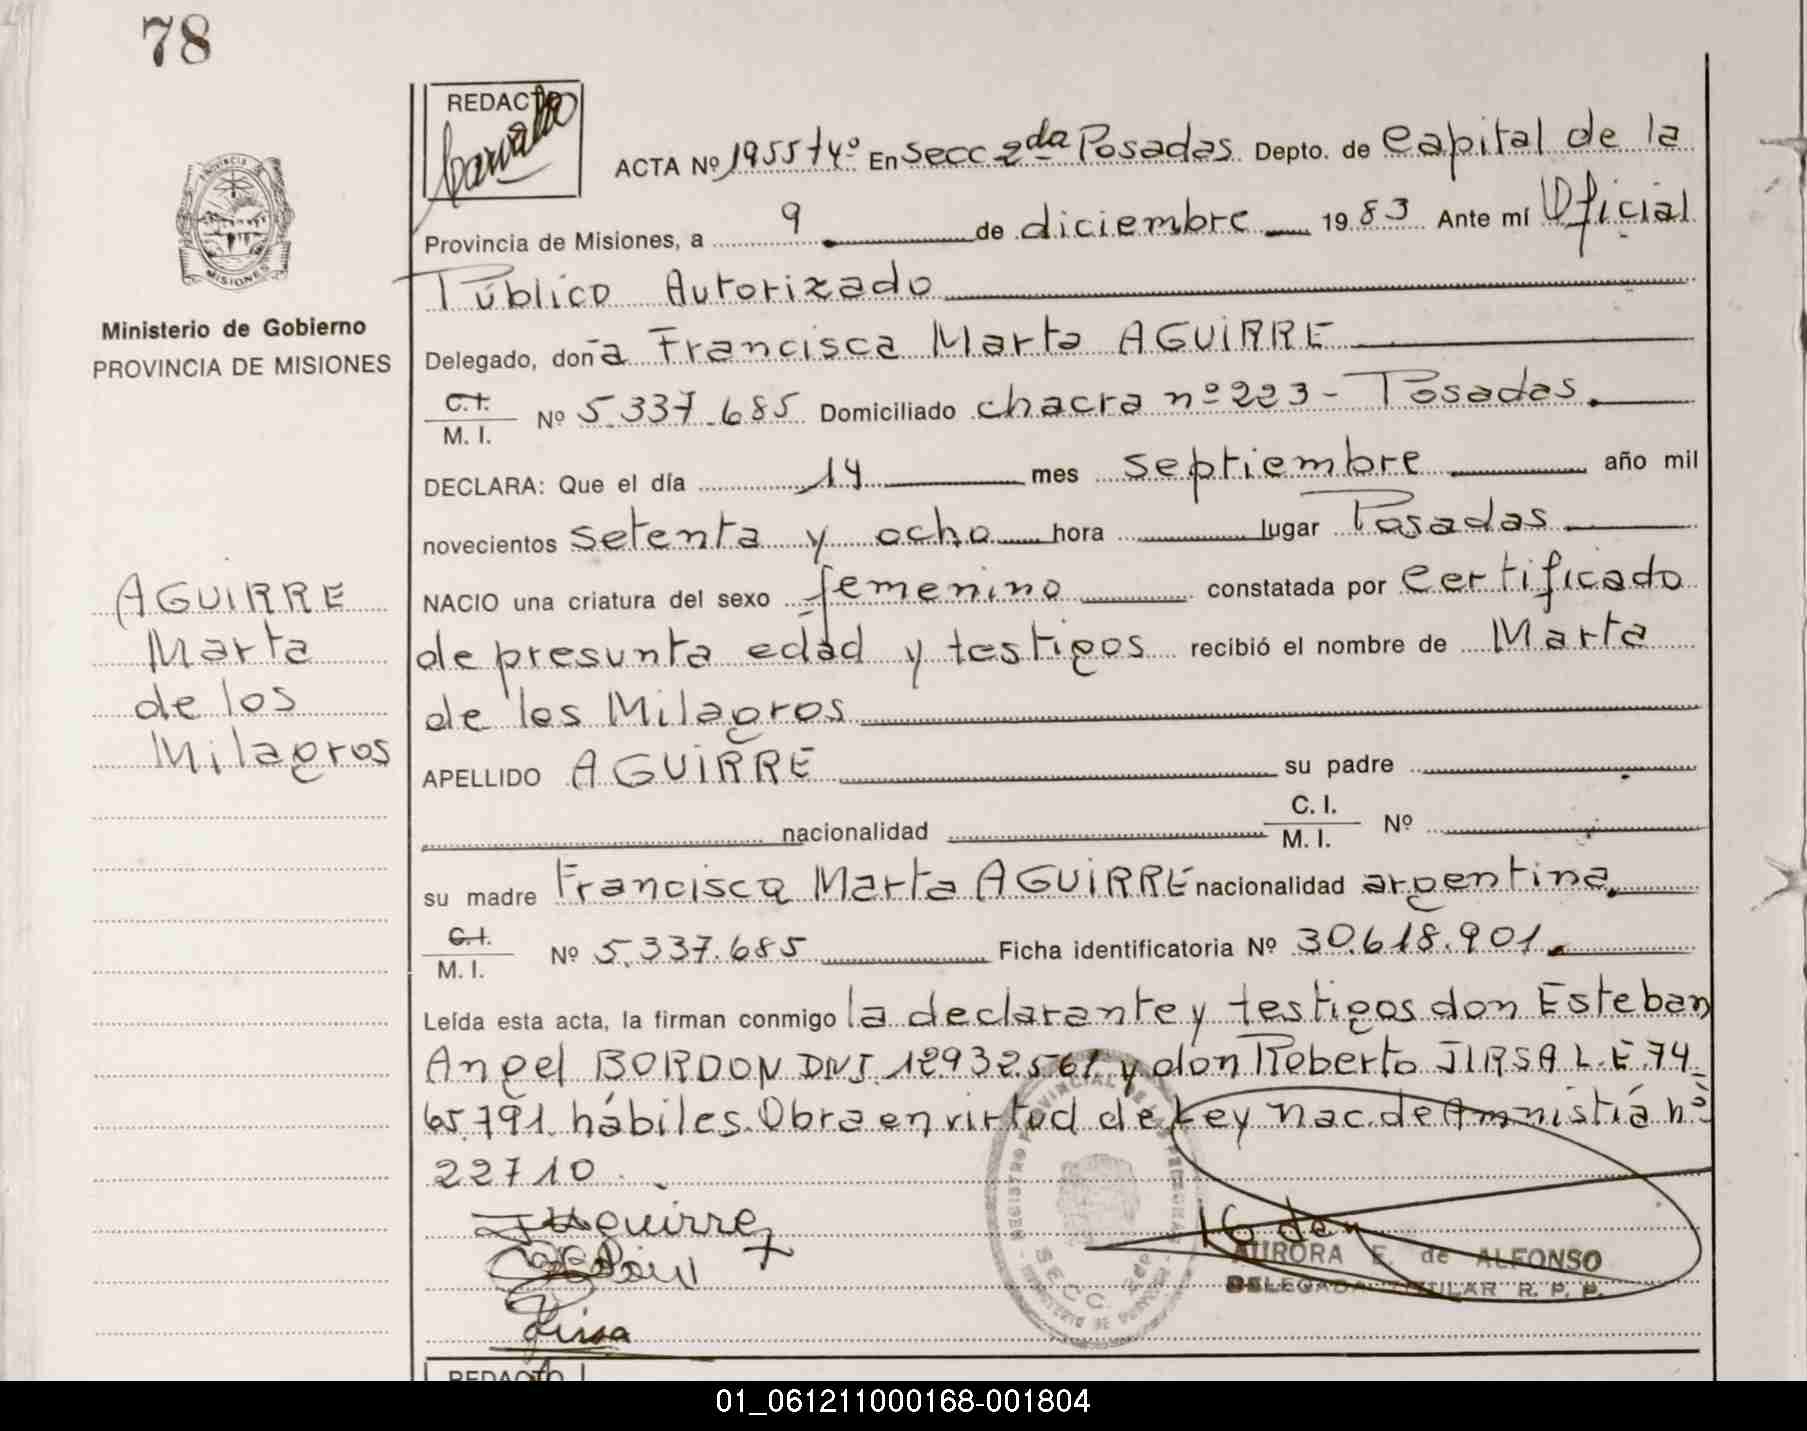 78
REDACTO
Carvallo
ACTA Nº 1955 tº 4º En Secc 2da Posadas Depto. de Capital de la
Provincia de Misiones, a 9 de diciembre 1983 Ante mí Oficial
Público Autorizado
PROVINCIA
MISIONES
Ministerio de Gobierno
PROVINCIA DE MISIONES
Delegado, doña Francisca Marta AGUIRRE
C.I.
M. I. Nº 5.337.685 Domiciliado chacra nº 223 - Posadas.
DECLARA: Que el día 14 mes septiembre año mil
novecientos setenta y ocho hora lugar Posadas
NACIO una criatura del sexo femenino constatada por Certificado
de presunta edad y testigos recibió el nombre de Marta
de los Milagros
AGUIRRE
Marta
de los
Milagros
APELLIDO AGUIRRE su padre
nacionalidad C. I.
M. I. Nº
su madre Francisca Marta AGUIRRE nacionalidad argentina.
C.I.
M. I. Nº 5.337.685 Ficha identificatoria Nº 30.618.901.
Leída esta acta, la firman conmigo la declarante y testigos don Esteban
Angel BORDON DNI. 12932.561 y don Roberto JIRSA L.E. 74
65.791. hábiles. Obra en virtud de Ley Nac. de Amnistiá nº
22710.
Aguirre
Jirsa
SECC. 2da
AURORA E. de ALFONSO
DELEGADA TITULAR R. P. P.
REDACTO
01_061211000168-001804